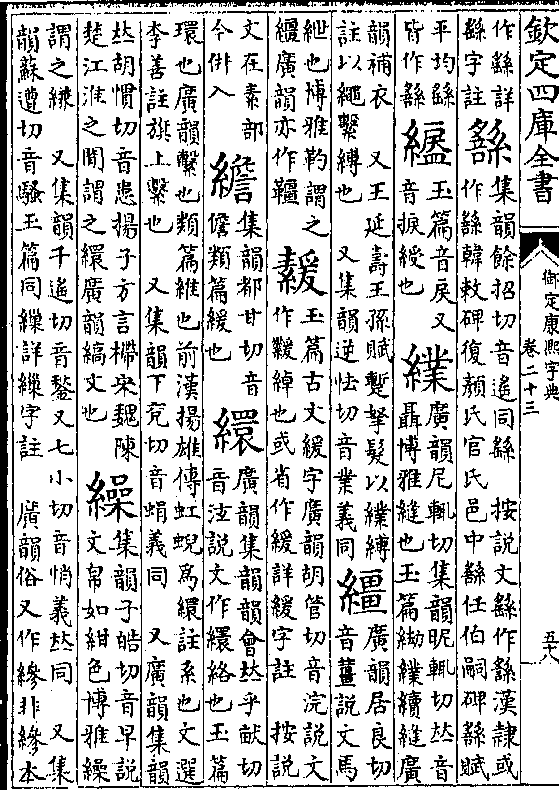 欽定四庫全書
御定康熙字典
卷二十三
五十八
作繇詳
繇字註
䌛
集韻餘招切音遙同繇 按說文繇作䌛漢隸或
作繇韓敕碑復顏氏官氏邑中繇任伯嗣碑繇賦
平均繇
皆作繇
玉篇音戾又
音捩綬也
廣韻尼輒切集韻昵輒切𠀤音
聶博雅縫也玉篇續縫廣
韻補衣 又王延壽王孫賦蹔拏髮以縛
註以繩繫縛也 又集韻逆怯切音業義同
繮
廣韻居良切
音薑說文馬
紲也博雅靮謂之
繮廣韻亦作韁
玉篇古文緩字廣韻胡管切音浣說文
作綽也或省作緩詳緩字註 按說
文在素部
今倂入
集韻都甘切音
儋類篇緩也
繯
廣韻集韻韻會𠀤乎畎切
音泫說文作繯絡也玉篇
環也廣韻繫也類篇維也前漢揚雄傳虹蜺爲繯註系也文選
李善註旗上繫也 又集韻下兗切音蜎義同 又廣韻集韻
𠀤胡慣切音患揚子方言宋魏陳
楚江淮之間謂之繯廣韻縞文也
繰
集韻子皓切音早說
文帛如紺色博雅繰
謂之縑 又集韻千遙切音鍫又七小切音悄義𠀤同 又集
韻蘇遭切音騷玉篇同繅詳繅字註 廣韻俗又作縿非縿本